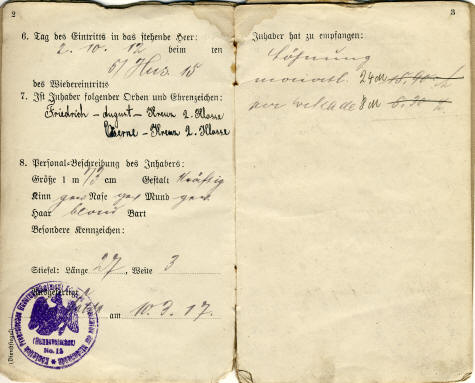 2
6. Tag des Eintritts in das stehende Heer:
2. 10. 12 beim ten
5/ Hus. 15
des Wiedereintritts
7. Ist Inhaber folgender Orden und Ehrenzeichen:
Friedrich-August-Kreuz 2. Klasse
Eiserne-Kreuz 2. Klasse
8. Personal-Beschreibung des Inhabers:
Größe 1 m 73 cm Gestalt kräftig
Kinn gew Nase gew Mund gew.
Haar blond Bart
Besondere Kennzeichen:
Stiefel: Länge 27, Weite 3
Ausgefertigt
am 10. 3. 17.
(Hannoversches)
No. 15
3
Inhaber hat zu empfangen:
Löhnung
monatl. 24 M
8 M